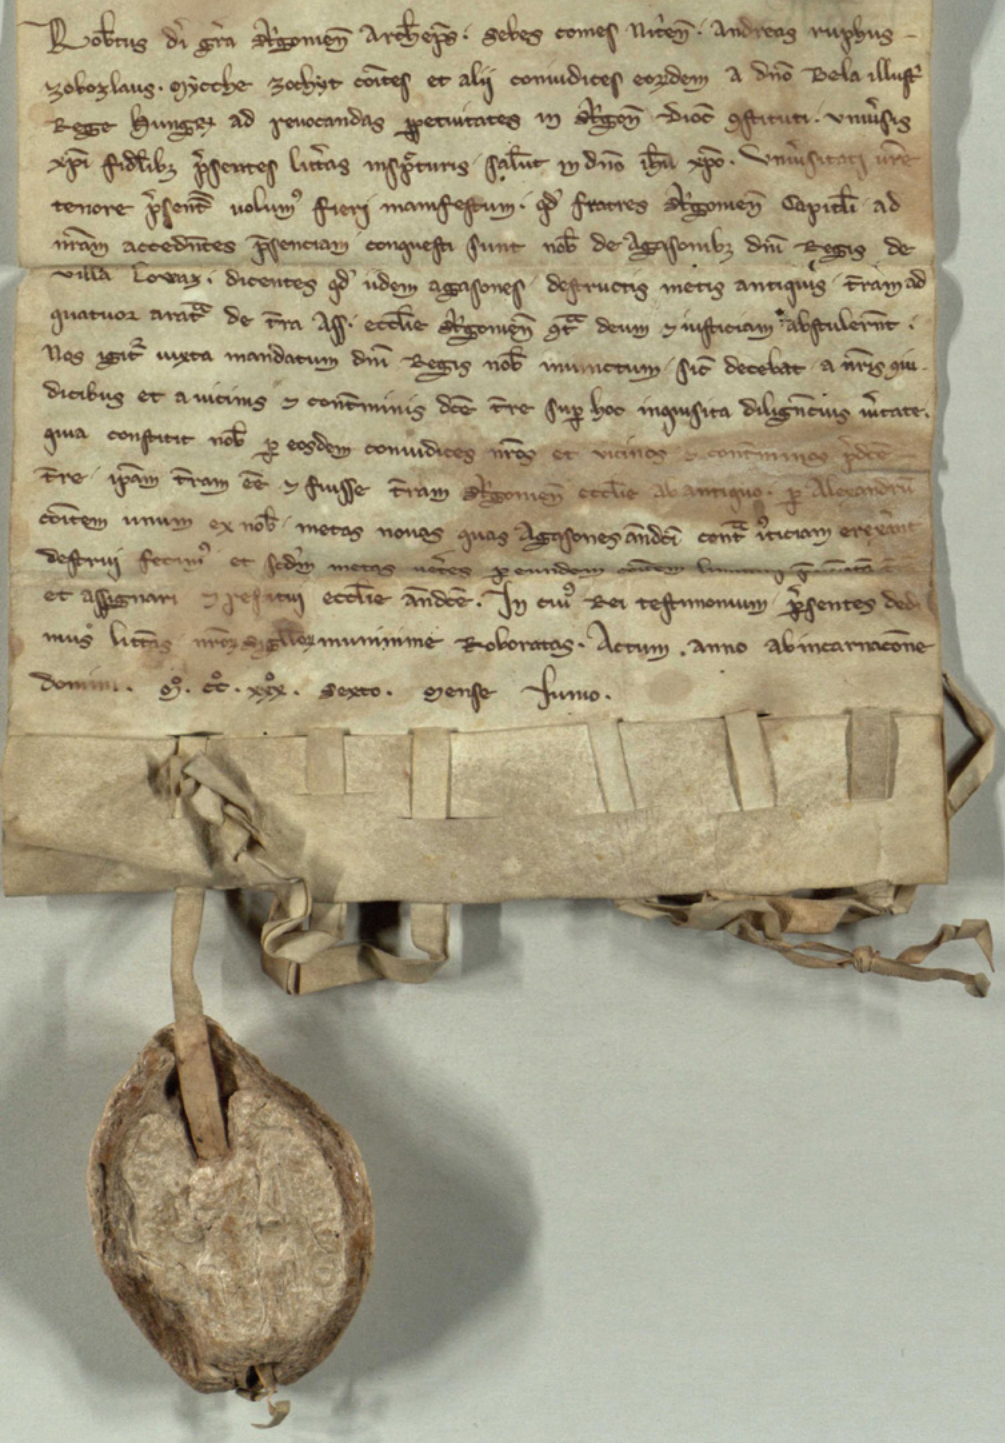 Rob̅tus di̅ gr̅a Str̅gonien̅ Arch̅ep̅s · Sebes comes Nit̅en̅ · Andreas ruphus
zobozlaus · Mycche zochyt com̅tes et alii coniudices eor̅dem a dn̅o Bela illust̅
Rege Hungar̅ ad reuocandas p̅petuitates in Str̅gon̅ dioc̅ ꝯstituti · Vniu̅sis
xp̅i fidl̅ibꝫ p̅sentes litt̅as insp̅cturis sal̅ut̅ in dn̅o ih̅u xp̅o · Vniu̅sitati ur̅e
tenore p̅sent̅ uolumꝰ fieri manifestum · qd̅ fratres Str̅gonien̅ Capitl̅i ad
nr̅am acceden̅tes p̅senciam conquesti sunt nob̅ de Agasonibꝫ dn̅i Regis de
villa Louaz · dicentes qd̅ iidem agasones destructis metis antiquis t̅ram ad
quatuor aratr̅a de t̅ra Ass · eccl̅ie Str̅gonien̅ ꝯt̅ deum ⁊ iusticiam abstuler̅nt ·
Nos igit̅ iuxta mandatum dn̅i Regis nob̅ iniunctum sic̅ decebat a nr̅is ꝯiu
dicibus et a uicinis ⁊ cont̅minis dc̅e t̅re sup̅ hoc inquisita diligen̅cius u̅itate ·
quia constitit nob̅ p̅ eosdem coniudices nr̅os et uicinos ⁊ cont̅minos p̅dc̅e
t̅re ip̅am t̅ram ee̅ ⁊ fuisse t̅ram Str̅gonien̅ eccl̅ie ab antiquo · p̅ Alexandru̅
com̅tem unum ex nob̅ metas nouas quas Agasones an̅dc̅i cont̅ iu̅ticiam erexer̅nt
destrui fecimꝰ et sc̅dm metas uet̅es p̅ eundem com̅tem
et assignari ⁊ restitui eccl̅ie an̅dc̅e · In cuiꝰ Rei testimonium p̅sentes dedi
mus litt̅as nr̅or̅ sigillor̅ munimine Roboratas · Actum · anno ab incarnacio̅ne
domini · Mͦ · CCͦ · xxxͦ · sexto · Mense Iunio ·